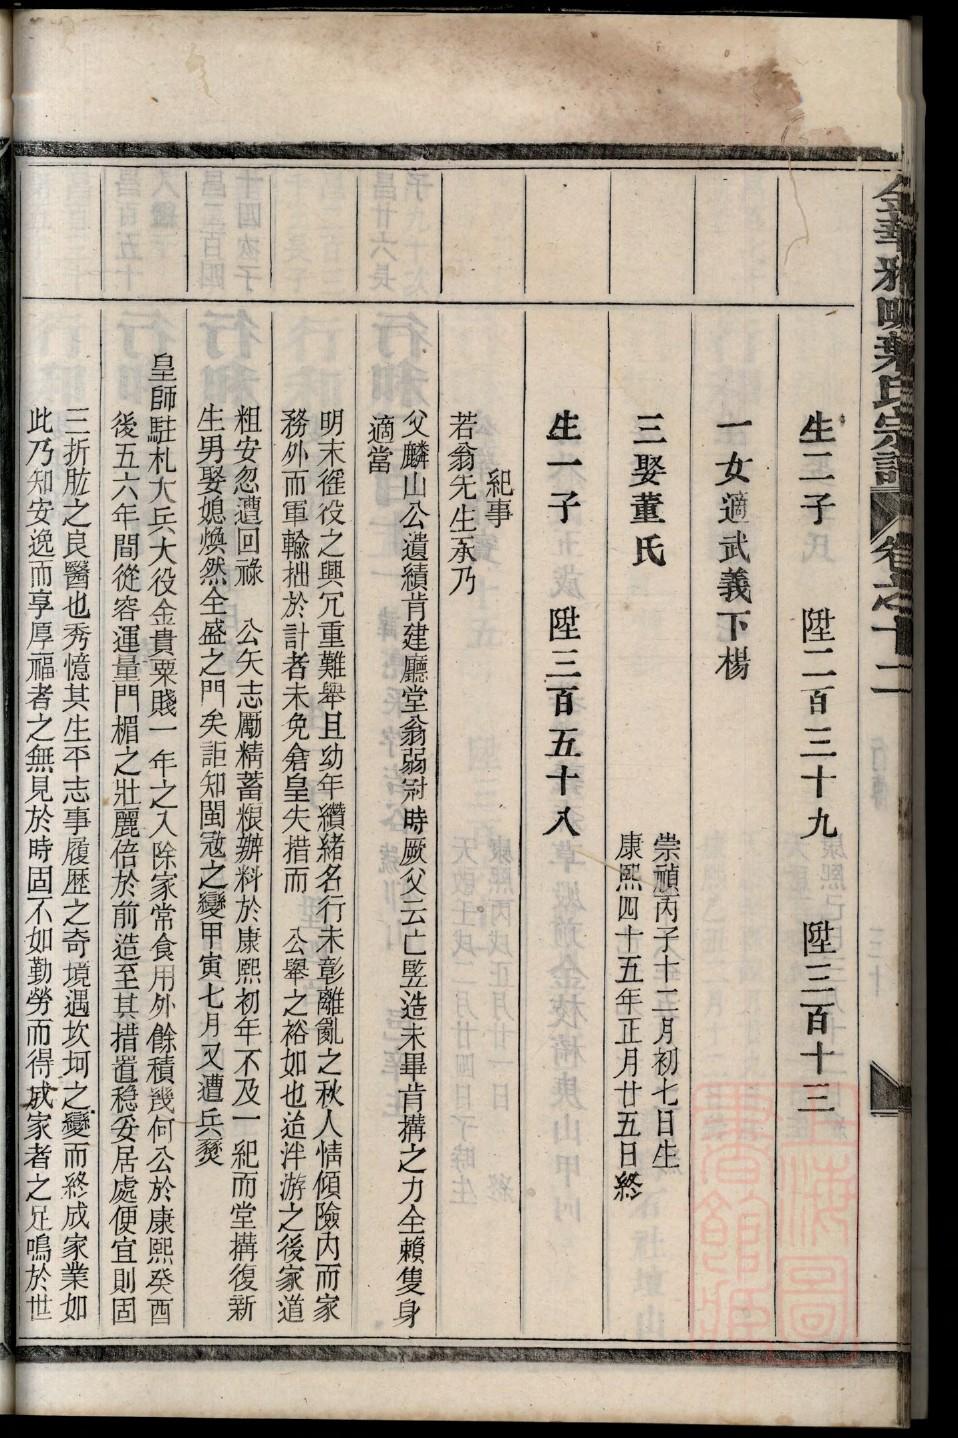 金華雅畈葉氏宗譜 卷之十二
生二子 陞二百三十九 陞三百十三
一女適武義下楊
三娶董氏
崇禎丙子十二月初七日生
康熙四十五年正月廿五日終
生一子 陞三百五十八
紀事
若翁先生承乃
父麟山公遺績肯建廳堂翁弱冠時厥父云亡竪造未畢肯搆之力全賴隻身
適當
明末徭役之興冗重難舉且幼年纘緒名行未彰離亂之秋人情傾險內而家
務外而軍輸拙於計者未免倉皇失措而 公舉之裕如也迨泮游之後家道
粗安忽遭回祿 公矢志勵精蓄粮辦料於康熙初年不及一紀而堂搆復新
生男娶媳煥然全盛之門矣詎知閩寇之變甲寅七月又遭兵燹
皇師駐札大兵大役金貴粟賤一年之入除家常食用外餘積幾何公於康熙癸酉
後五六年間從容運量門楣之壯麗倍於前造至其措置穩妥居處便宜則固
三折肱之良醫也秀憶其生平志事履歷之奇境遇坎坷之變而終成家業如
此乃知安逸而享厚福者之無見於時固不如勤勞而得成家者之足鳴於世